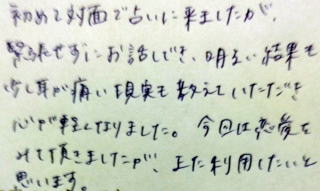 初めて対面で占いに来ましたが、
緊張せずにお話しでき、明るい結果も
少し耳が痛い現実も教えていただき
心が軽くなりました。今回は恋愛を
みて頂きましたが、また利用したいと
思います。